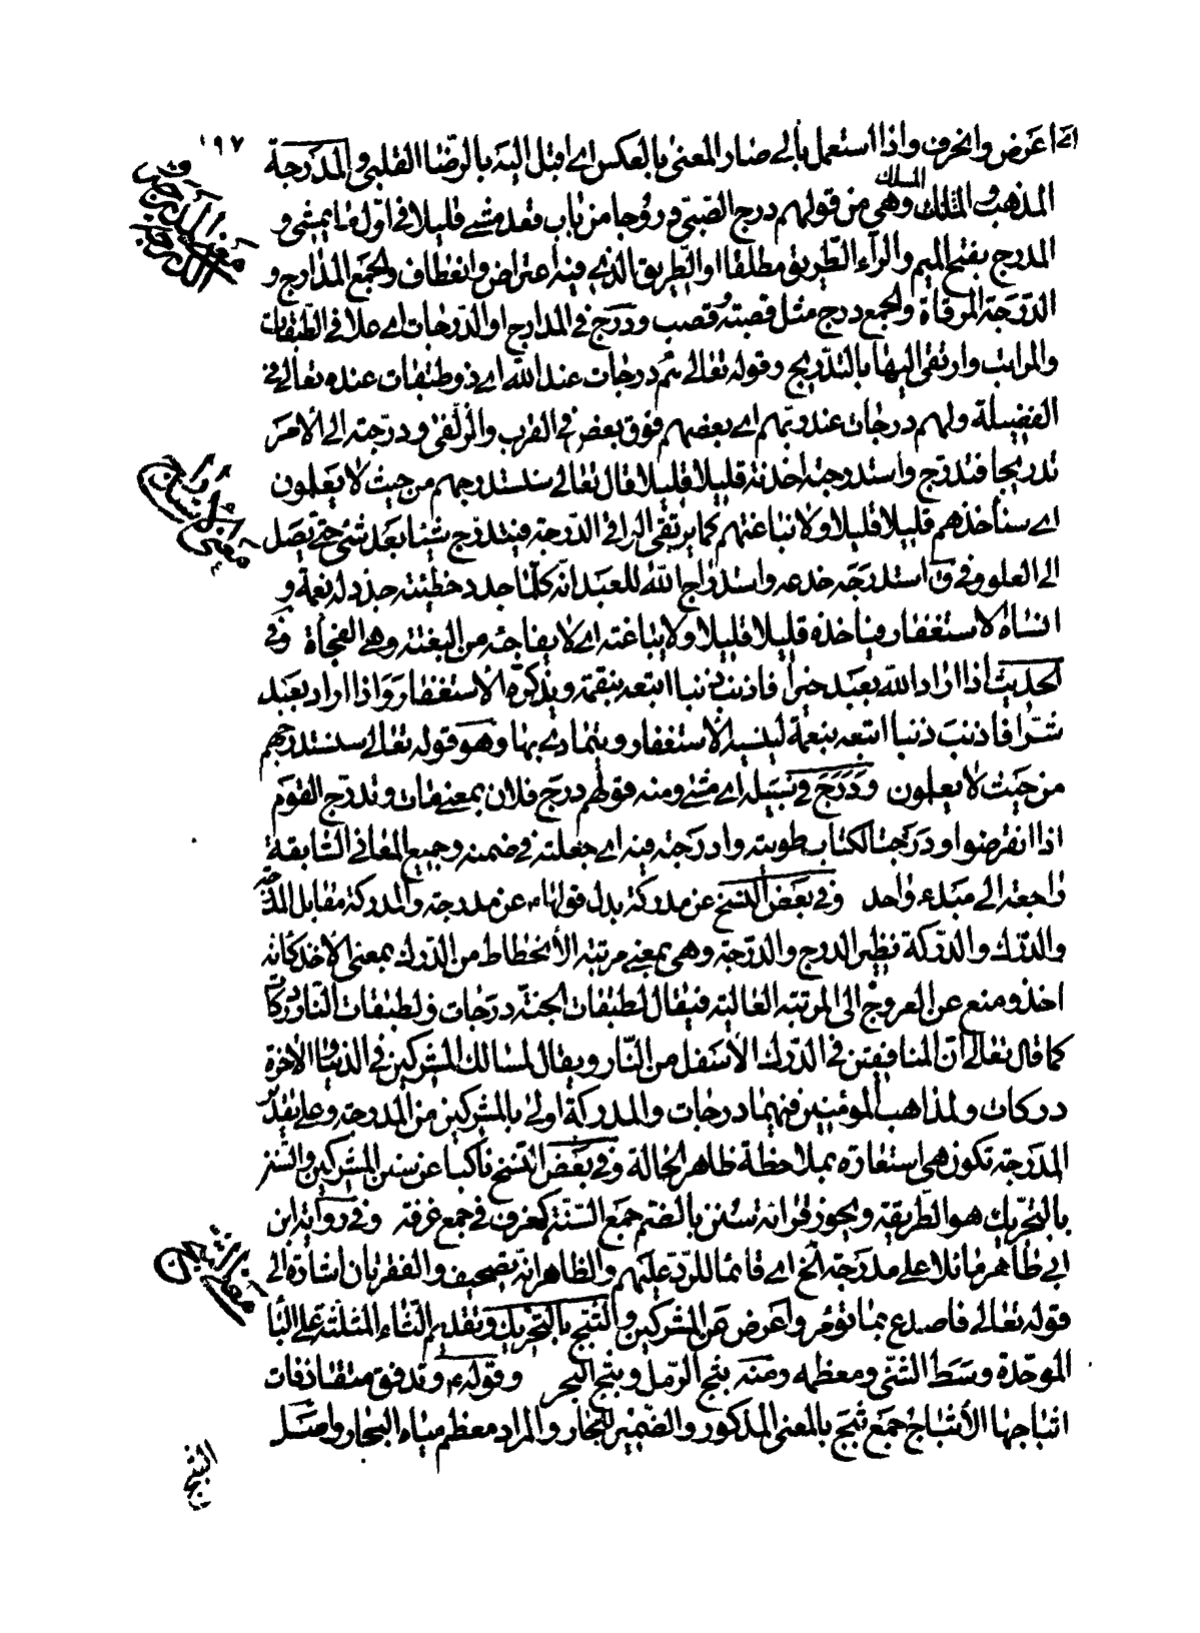 ١٩٧
اى اعرض وانحرف واذا استعمل بالى صار المعنى بالعكس اى اقبل اليه بالرضا القلبى والمدرجة
المذهب والمسلك وهى من قولهم درج الصبى دروجا من باب قعد مشى قليلا فى اول ما يمشى و
المدرج بفتح الميم والراء الطريق مطلقا او الطريق الذى فيه اعتراض وانعطاف والجمع المدارج و
الدرجة المرقاة والجمع درج مثل قصبة وقصب ودرج فى المدارج او الدرجات اى علا فى الطبقات
والمراتب وارتقى اليها بالتدريج وقوله تعالى هم درجات عند الله اى ذو طبقات عنده تعالى فى
الفضيلة ولهم درجات عند ربهم اى بعضهم فوق بعض فى القرب والزلفى ودرجته الى الامر
تدريجا فتدرج واستدرجته اخذته قليلا قليلا قال تعالى سنستدرجهم من حيث لا يعلمون
اى سنأخذهم قليلا قليلا ولا نباغتهم كما يرتقى الراقى الدرجة فيتدرج شيئا بعد شئ حتى يصل
الى العلو وفى ق استدرجه خدعه واستدراج الله للعبد انه كلما جدد خطيئته جدد له نعمة و
انساه الاستغفار فيأخذه قليلا قليلا ولا يباغته اى لا يفاجئه من البغتة وهى الفجأة وفى
الحديث اذا اراد الله بعبد خيرا فاذنب ذنبا اتبعه بنقمة ويذكره الاستغفار واذا اراد بعبد
شرا فاذنب ذنبا اتبعه بنعمة لينسيه الاستغفار ويتمادى بها وهو قوله تعالى سنستدرجهم
من حيث لا يعلمون ودرج فى سبيله اى مشى ومنه قولهم درج فلان بمعنى مات وتدرج القوم
اذا انقرضوا ودرجت الكتاب طويته وادرجته فيه اى جعلته فى ضمنه وجميع المعانى السابقة
راجعة الى مبدء واحد وفى بعض النسخ عن مدركة بدل قولها عن مدرجة والمدركة مقابل المدرجة
والدرك والدركة نظير الدرج والدرجة وهى بمعنى مرتبة الانحطاط من الدرك بمعنى الاخذ كانه
اخذ ومنع عن العروج الى المرتبة العالية فيقال لطبقات الجنة درجات ولطبقات النار دركات
كما قال تعالى ان المنافقين فى الدرك الاسفل من النار ويقال لمسالك المشركين فى الدنيا والآخرة
دركات ولمذاهب المؤمنين فيهما درجات والمدركة اولى بالمشركين من المدرجة وعلى تقدير
المدرجة تكون هى استعارة بملاحظة ظاهر الحالة وفى بعض النسخ ناكبا عن سنن المشركين والسنن
بالتحريك هو الطريقة ويجوز قرائة سنن بالضم جمع السنة كغرف فى جمع غرفة وفى رواية ابن
ابى طاهر ماثلا على مدرجة الخ اى قائما للرد عليهم والظاهر انه تصحيف والفقرتان اشارة الى
قوله تعالى فاصدع بما تؤمر واعرض عن المشركين والثبج بالتحريك وتقديم الثاء المثلثة على الباء
الموحدة وسط الشئ ومعظمه ومنه ثبج الرمل وثبج البحر وقولها وتدفق متقاذفات
اثباجها الاثباج جمع ثبج بالمعنى المذكور والضمير للبحار والمراد معظم مياه البحار واصل
معنى المدرجة
والدرجات
معنى استدراج
معنى الثبج
الثبج